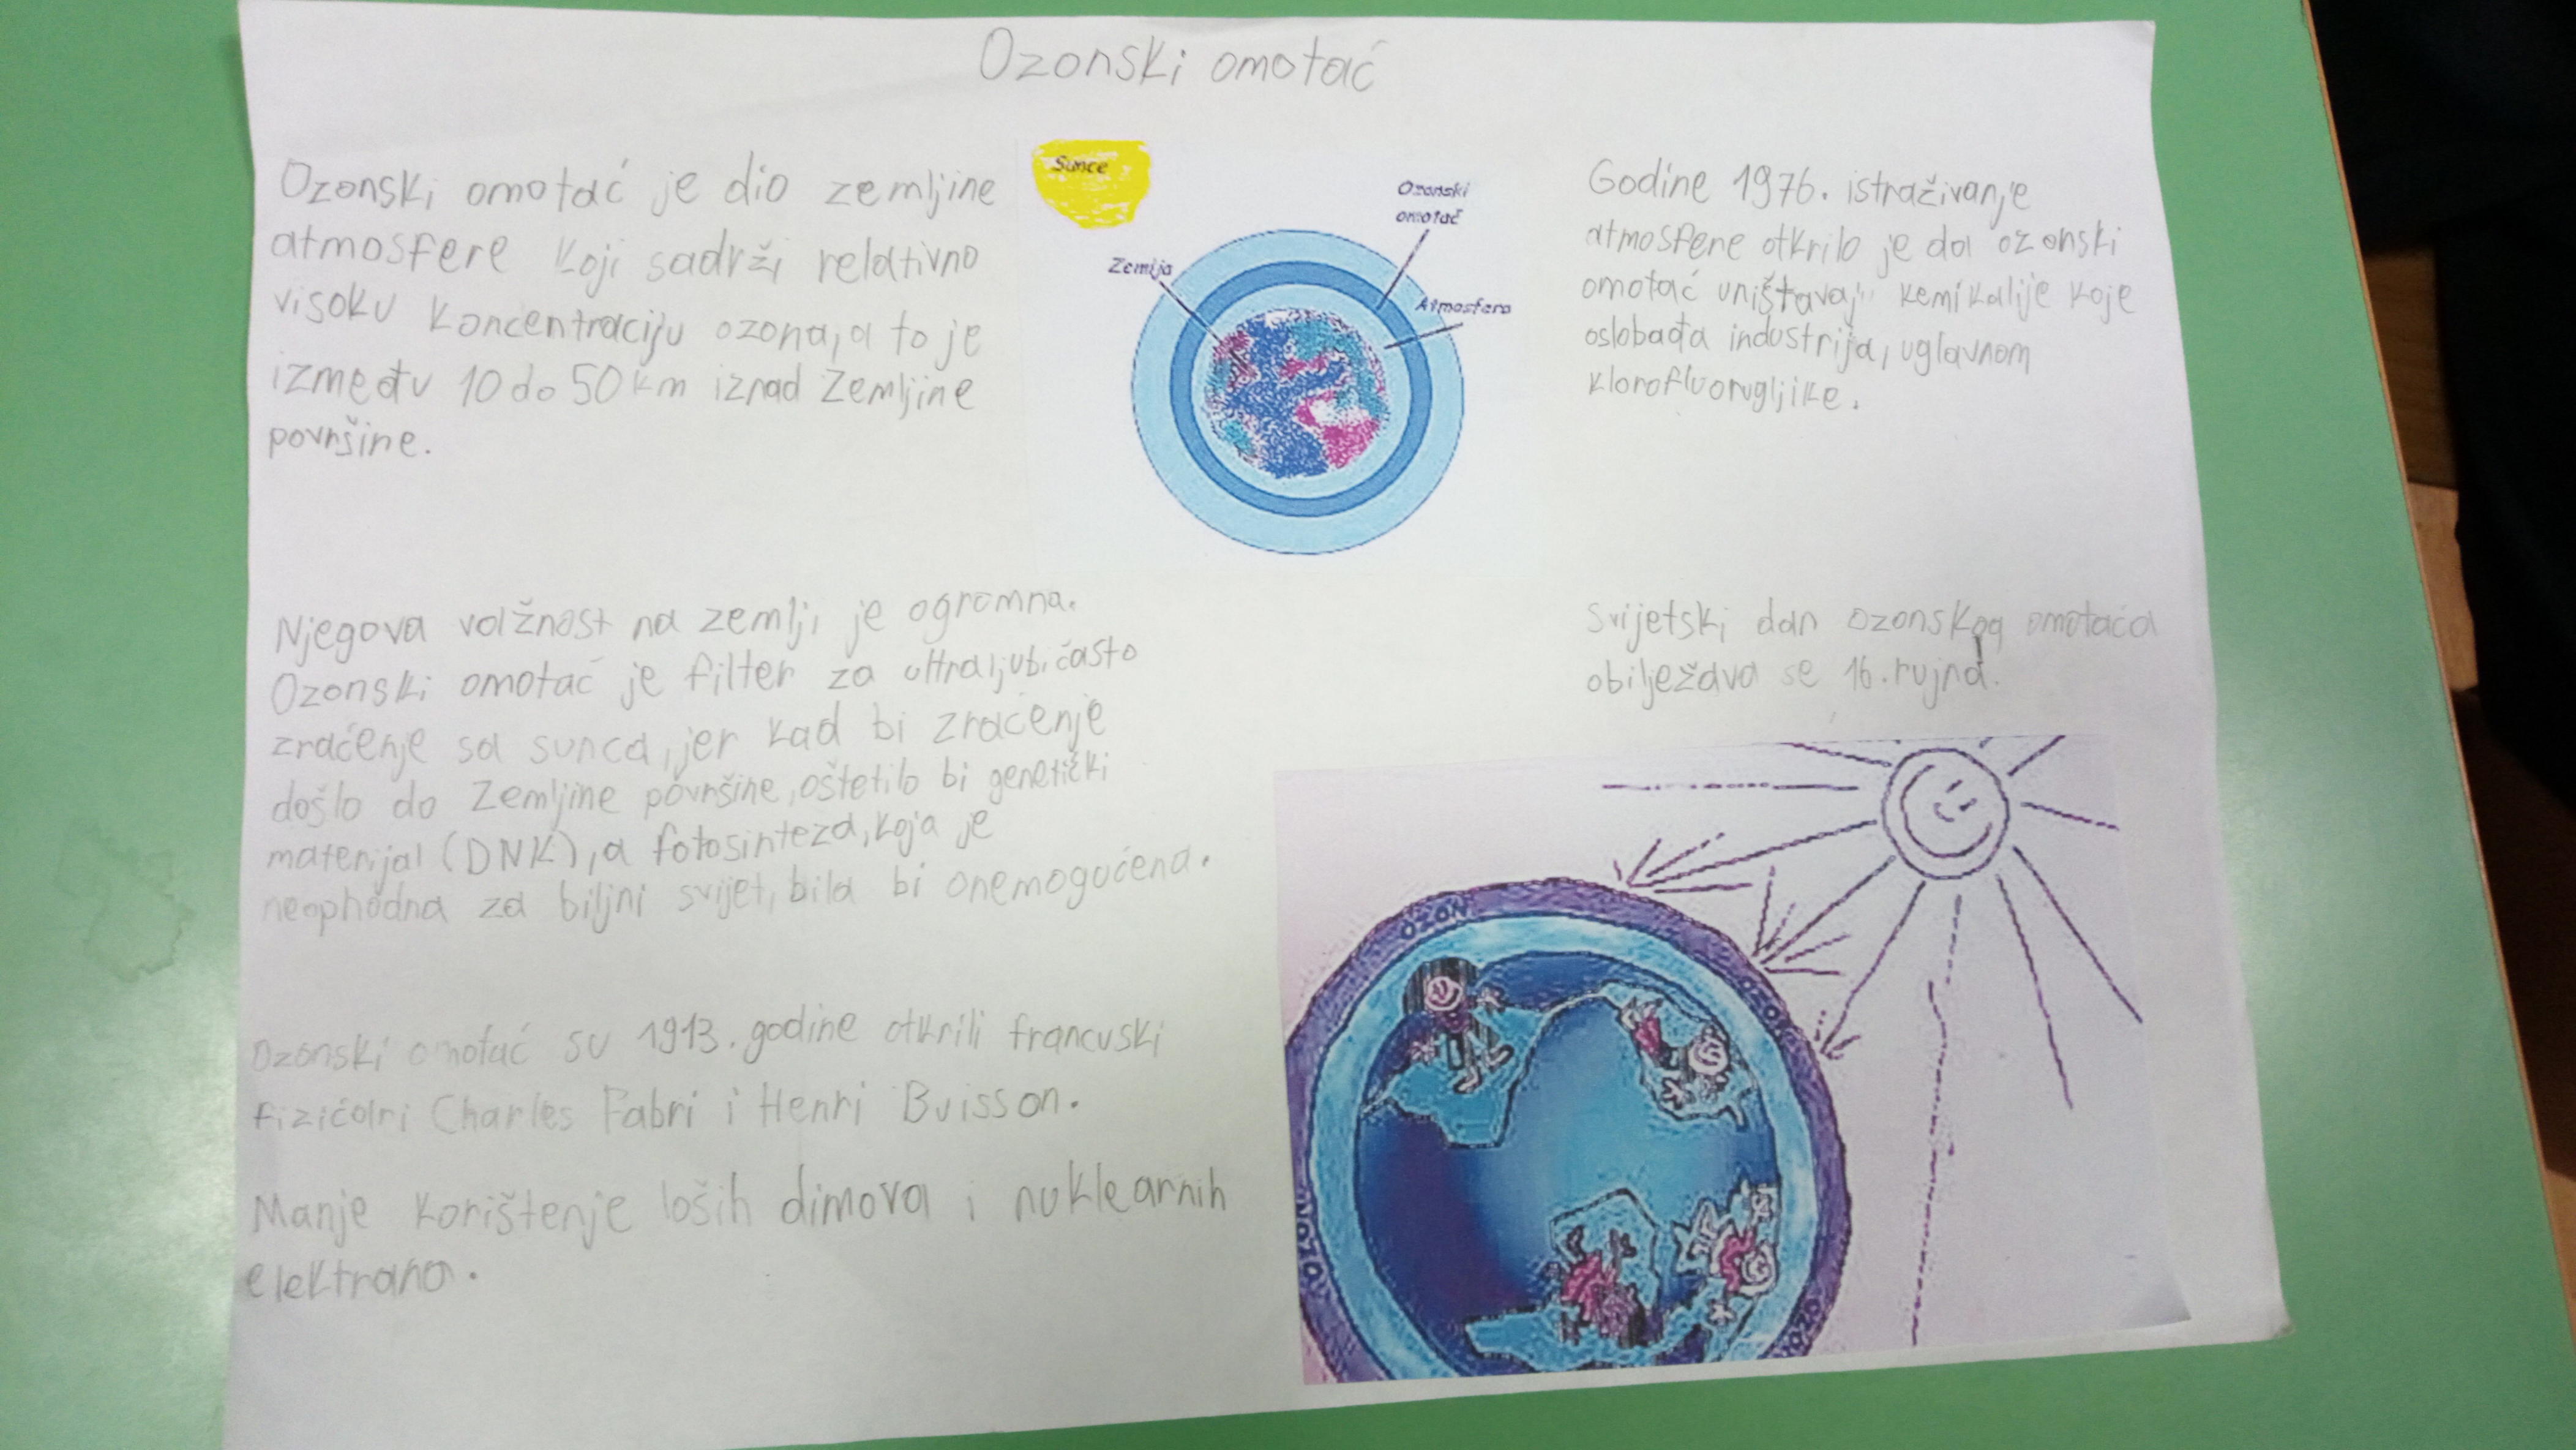 Ozonski omotać
Ozonski omotać je dio zemljine
atmosfere koji sadrži relativno
visoku koncentraciju ozona, a to je
između 10 do 50 km iznad Zemljine
površine.
Sunce
Ozonski
omotač
Zemlja
Atmosfera
Godine 1976. istraživanje
atmosfere otkrilo je da ozonski
omotać uništavaju kemikalije koje
oslobađa industrija, uglavnom
klorofluorugljike.
Njegova važnost na zemlji je ogromna.
Ozonski omotać je filter za ultraljubičasto
zraćenje sa sunca, jer kad bi zraćenje
došlo do Zemljine površine, oštetilo bi genetički
materijal (DNK), a fotosinteza, koja je
neophodna za biljni svijet, bila bi onemogućena.
Svijetski dan ozonskog omotaća
obilježava se 16. rujna.
Ozonski omotać su 1913. godine otkrili francuski
fizićari Charles Fabri i Henri Buisson.
Manje korištenje loših dimova i nuklearnih
elektrana.
OZON
OZON
OZON
OZO